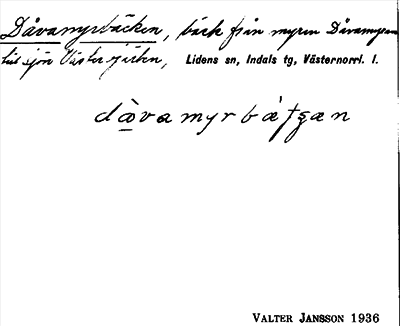 Dåvamyrbäcken, bäck från myren Dåvamyren
till sjön Väster Lidens sn, Indals tg, Västernorrl. l.
VALTER JANSSON 1936